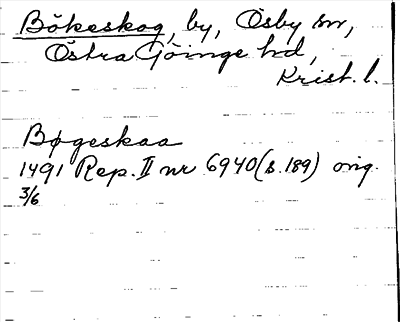 Bökeskog, by, Osby sn,
Östra Göinge hd,
Krist. l.
Bøgeskaa
1491 Rep. II nr 6940 (s. 189) orig.
3/6